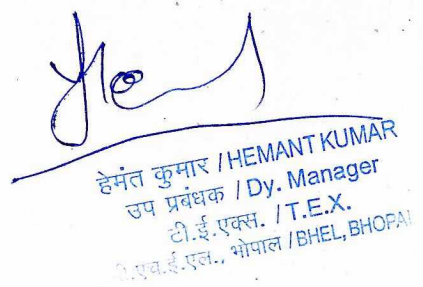 हेमंत कुमार / HEMANT KUMAR
उप प्रबंधक / Dy. Manager
टी.ई.एक्स. / T.E.X.
.एच.ई.एल., भोपाल / BHEL, BHOPAL